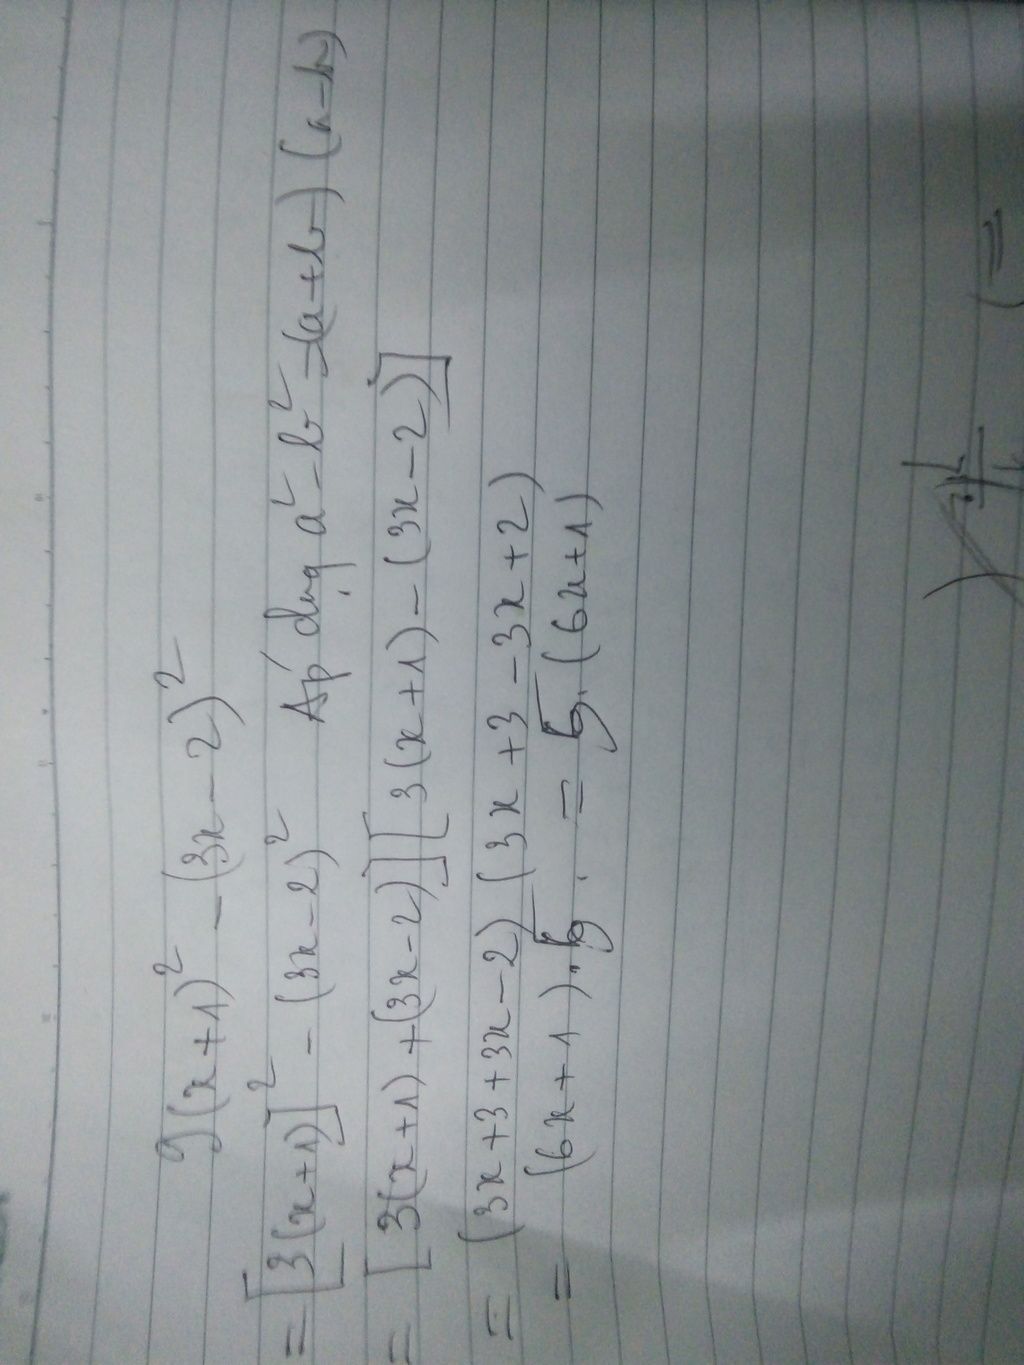 9(x+1)² - (3x-2)²
= [3(x+1)]² - (3x-2)² Áp dụng a²-b²=(a+b)(a-b)
= [3(x+1)+(3x-2)][3(x+1)-(3x-2)]
= (3x+3+3x-2)(3x+3-3x+2)
= (6x+1).5. = 5.(6x+1)